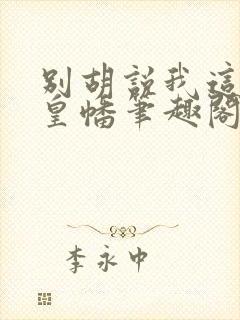 别胡说我这
皇幡笔趣阁
李永中